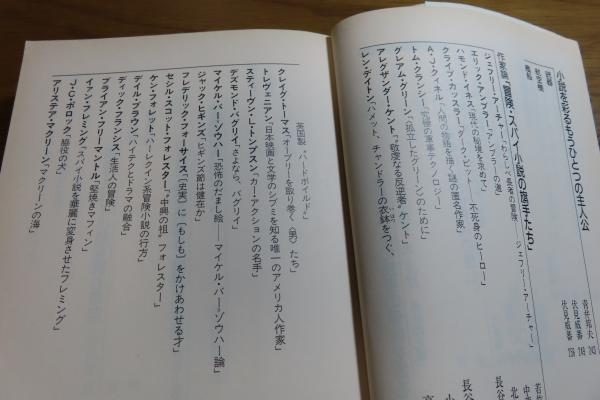 小説を彩るもうひとつの主人公
武器 青井邦夫 243
航空機 伏見威蕃 249
艦船 伏見威蕃 256
作家論「冒険・スパイ小説の旗手たち」
ジェフリー・アーチャー「わらしべ長者の冒険 ジェフリー・アーチャー」
エリック・アンブラー「アンブラーの道」
ハモンド・イネス「現代の秘境を求めて」
クライブ・カッスラー「ダーク・ピット——不死身のヒーロー」
A・J・クィネル「人間の物語を描く謎の匿名作家」
トム・クランシー「究極の軍事テクノロジー」
グレアム・グリーン「〈孤立したグリーン〉のために」
アレグザンダー・ケント「“敬虔なる反逆者”ケント」
レン・デイトン「ハメット、チャンドラーの衣鉢をつぐ、
英国製“ハードボイルド”」
クレイグ・トーマス「オーブリーを取り巻く〈男〉たち」
トレヴェニアン「日本映画と文学のシブミを知る唯一のアメリカ人作家」
スティーヴン・L・トンプスン「カー・アクションの名手」
デズモンド・バグリイ「さよなら、バグリイ」
マイケル・バー＝ゾウハー「恐怖のだまし絵——マイケル・バー＝ゾウハー論」
ジャック・ヒギンズ「ヒギンズ節は健在か」
フレデリック・フォーサイス「〈史実〉に〈もしも〉をかけあわせる才」
セシル・スコット・フォレスター「“中興の祖”フォレスター」
ケン・フォレット「ハーレクイン系冒険小説の行方」
デイル・ブラウン「ハイテクとドラマの融合」
ディック・フランシス「生活人の冒険」
ブライアン・フリーマントル「堅焼きマフィン」
イアン・フレミング「スパイ小説を華麗に変身させたフレミング」
J・C・ポロック「脇役の犬」
アリステア・マクリーン「マクリーンの海」